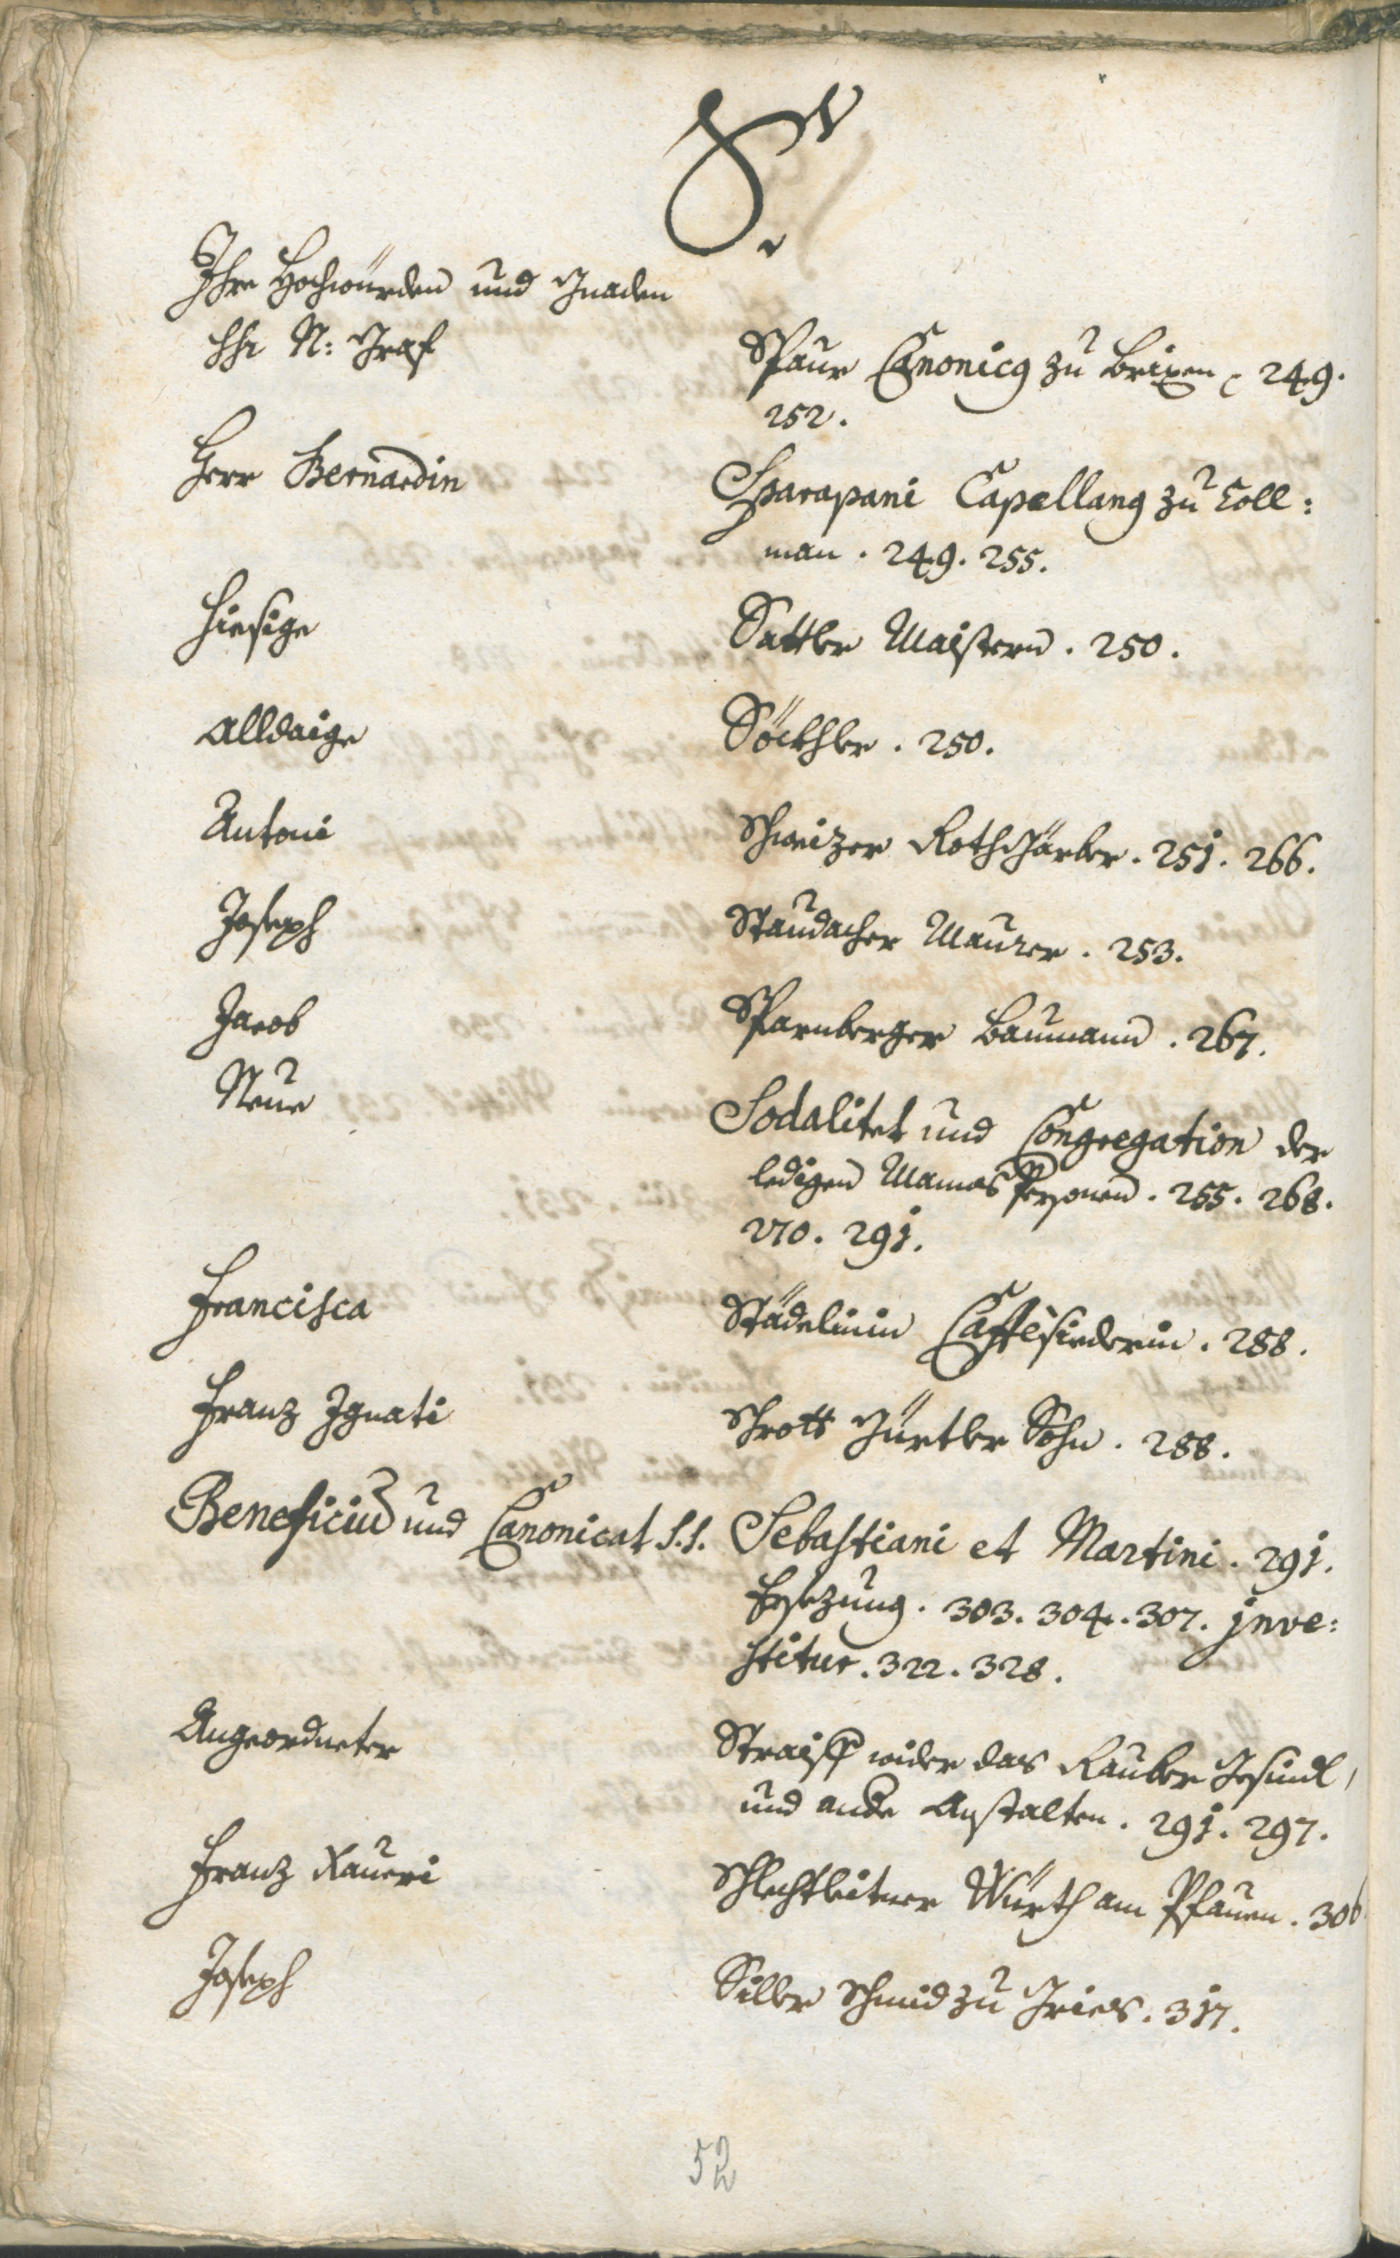 S.
Ihre Hochwürden und Gnaden
HHr N: Graf Spaur Canonicus zu Brixen 249.
252.
Herr Bernardin Sparapani Capellanus zu Coll:
man. 249. 255.
Hiesige Sattler Maistern. 250.
Alldaige Söckhler. 250.
Antoni Schweizer Rothfärber. 251. 266.
Joseph Staudacher Maurer. 253.
Jacob Sparnberger Baumann. 267.
Neue Sodalitet und Congregation der
ledigen Manns Personen. 255. 268.
270. 291.
Francisca Städelinin Caffèsiederin. 288.
Franz Ignati Schrott Gürtler Sohn. 288.
Beneficium und Canonicat S.S. Sebastiani et Martini. 291.
Ersezung. 303. 304. 307. jnve:
stitur. 322. 328.
Angeordneter Straiff wider das Rauber Gesindl,
und andere Anstalten. 291. 297.
Franz Xaueri Schlechtleitner Würth am Pfauen. 306
Joseph Siller Schmid zu Gries. 317.
52